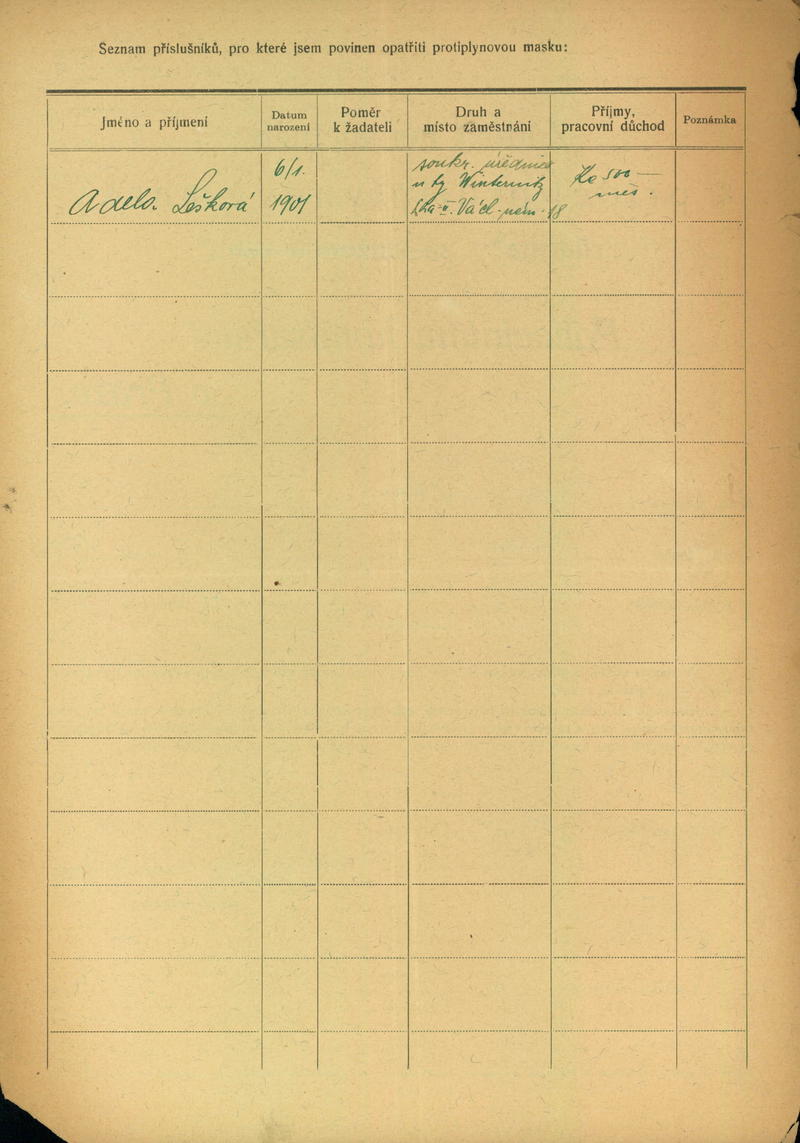 Seznam příslušníků, pro které jsem povinen opatřiti protiplynovou masku:
Jméno a příjmení
Datum
narození
Poměr
k žadateli
Druh a
místo zaměstnání
Příjmy,
pracovní důchod
Poznámka
Adela Lešková
6/1.
1901
soukr. úřednice
u fy Winternitz
Pha II. Václ. nám. 18
Kč 500 —
měs.